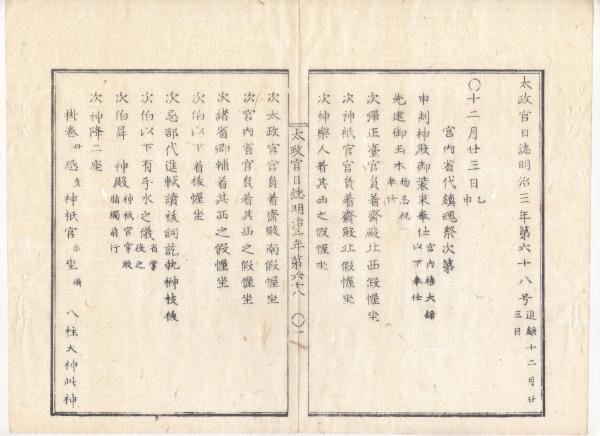 太政官日誌明治三年第六十八号 追録十二月廿三日
〇十二月廿三日乙申
宮内省代鎮魂祭次第
申刻神殿御装束奉仕 宮内権大録以下奉仕
先建御玉木 奉仕
次弾正臺官員着齋殿北西假幄坐
次神祇官官員着齋殿北假幄坐
次神樂人着其西之假幄坐
太政官日誌明治三年第六十八 〇一
次太政官官員着齋殿南假幄坐
次宮内省官員着其西之假幄坐
次諸省卿輔着其西之假幄坐
次伯以下着後幄坐
次忌部代進軾讀祓詞訖執榊枝祓
次伯以下有手水之儀 省掌役之
次伯昇神殿 神祇官掌殿脂燭扇行
次神降二座
掛巻毋恐支神祇官尓坐須八柱大神此神